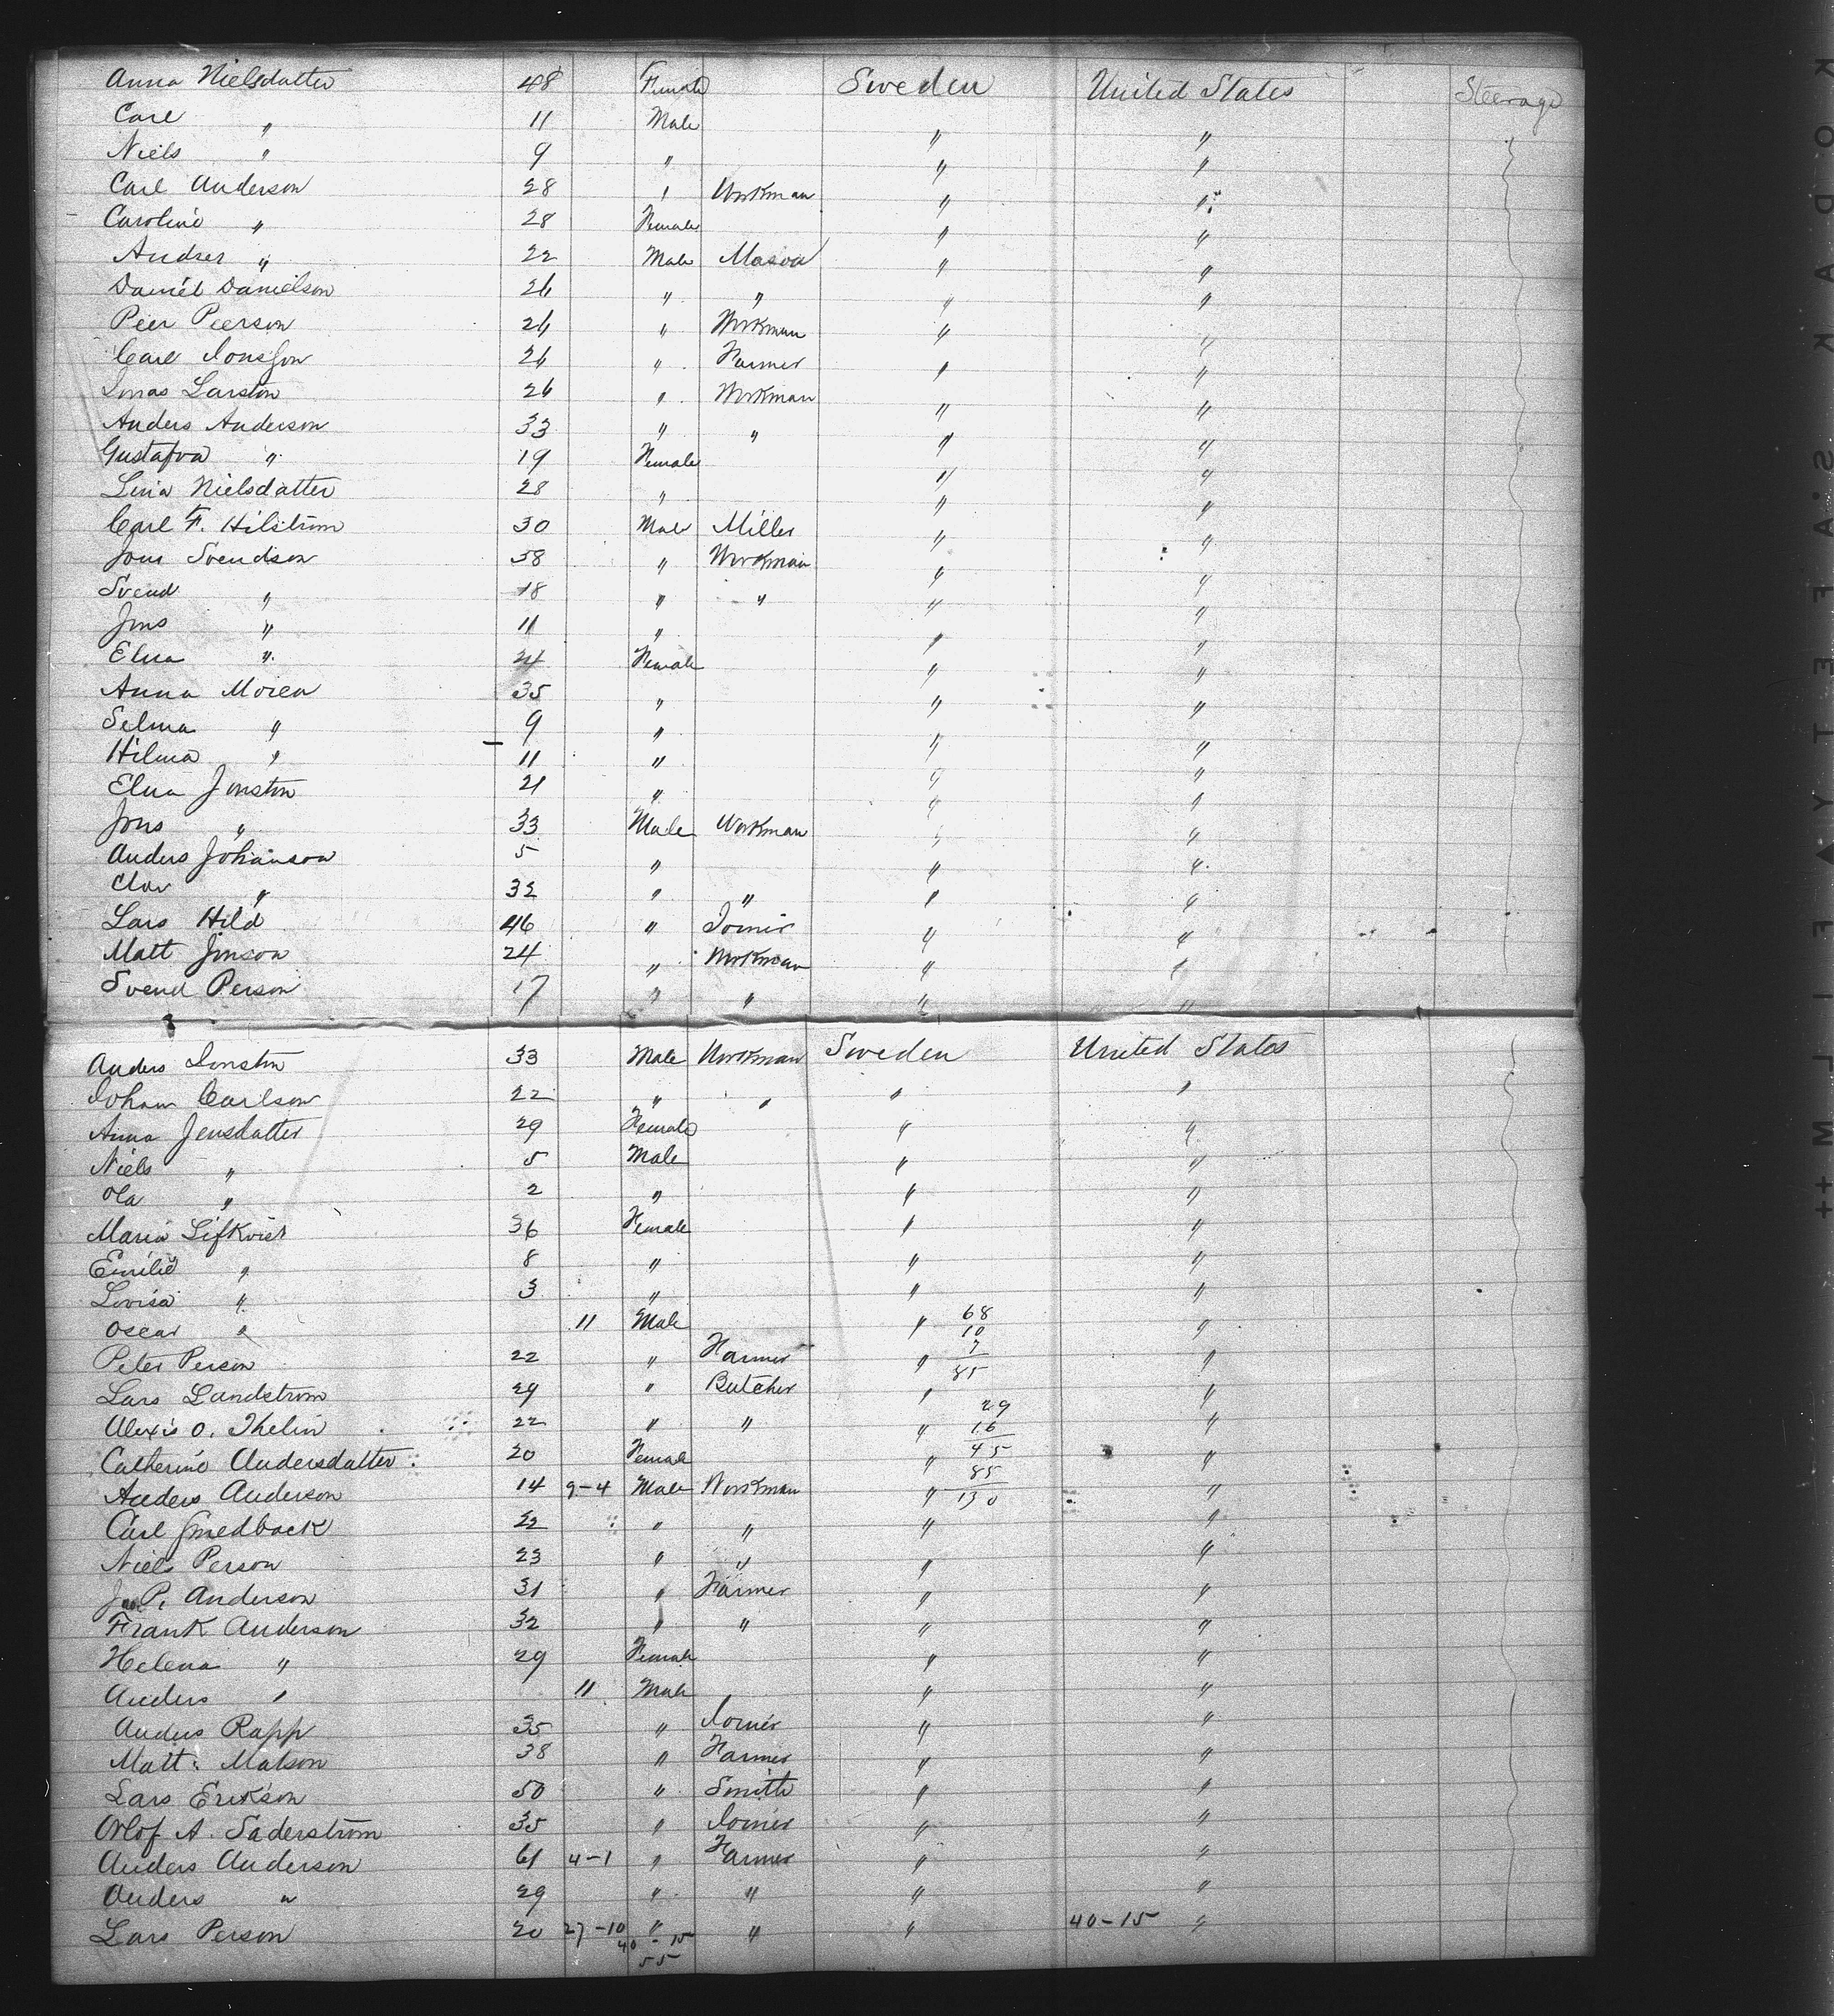 Anna Nielsdatter 48 Female Sweden United States Steerage
Carl " 11 Male " "
Niels " 9 " " "
Carl Anderson 28 " Workman " "
Caroline " 28 Female " "
Andrer " 22 Male Mason " "
Daniel Danielson 26 " " " "
Peer Peerson 26 " Workman " "
Carl Jonsson 26 " Farmer " "
Jonas Larston 26 " Workman " "
Anders Anderson 33 " " " "
Gustafva " 19 Female " "
Lina Nielsdatter 28 " " "
Carl F. Hilstrom 30 Male Miller " "
Jons Svendson 58 " Workman " "
Svend " 18 " " " "
Jons " 11 " " "
Elna " 24 Female " "
Anna Moren 35 " " "
Selma " 9 " " "
Hilma " 11 " " "
Elna Jonston 21 " " "
Jons " 33 Male Workman " "
Anders Johanson 5 " " "
" 32 " " " "
Lars Hild 46 " Joiner " "
Matt Jonson 24 " Workman " "
Svend Person 17 " " " "
Anders Jonston 33 Male Workman Sweden United States
Johan Carlson 22 " " " "
Anna Jensdatter 29 Female " "
Niels " 5 Male " "
Ola " 2 " " "
Maria Lifkvist 36 Female " "
Emilie " 8 " " "
Lovisa " 3 " " "
Oscar " 11 Male " 68 "
10
Peter Person 22 " Farmer " 7 "
85
Lars Landstrom 29 " Butcher " "
29
Alexis O. Thelin 22 " " " 16 "
Catherine Andersdatter 20 Female " 45 "
85
Anders Anderson 14 9-4 Male Workman " 130 "
Carl Smedback 22 " " " "
Niels Person 23 " " " "
P. Anderson 31 " Farmer " "
Frank Anderson 32 " " " "
Helena " 29 Female " "
Anders " 11 Male " "
Anders Rapp 35 " Joiner " "
Matt: Matson 38 " Farmer " "
Lars Erikson 50 " Smith " "
Olof A. Saderstrom 35 " Joiner " "
Anders Anderson 61 4-1 " Farmer " "
Anders " 29 " " " "
Lars Person 20 27-10 " " " 40-15 "
40-15
55
KODAK SAFETY FILM